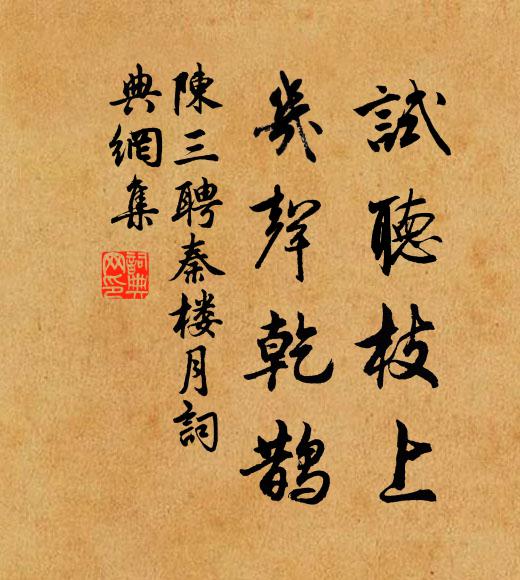 試聽枝上
幾聲乾鵲
陳三聘秦楼月詞
典網集
詞典網印